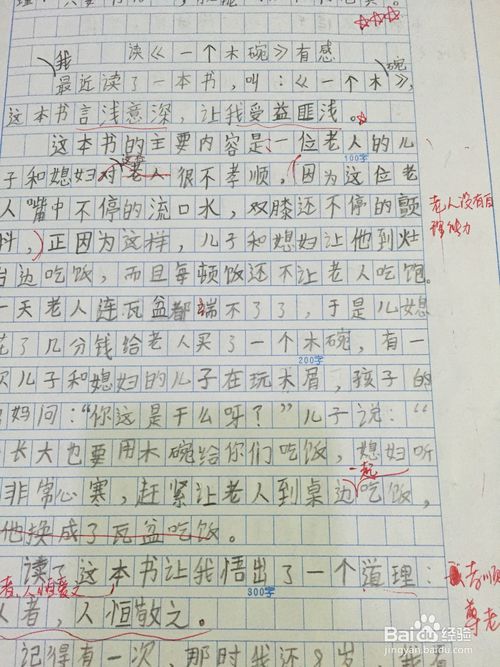 读《一个木碗》有感
我
最近读了一本书，叫：《一个木》，
碗
这本书言浅意深，让我受益匪浅。
这本书的主要内容是一位老人的儿
100字
子和媳妇对老人很不孝顺，因为这位老
人嘴中不停的流口水，双膝还不停的颤
老人没有自
理能力
抖，正因为这样，儿子和媳妇让他到灶
台边吃饭，而且每顿饭还不让老人吃饱。
一天老人连瓦盆都端不了了，于是儿媳
花了几分钱给老人买了一个木碗，有一
200字
次儿子和媳妇的儿子在玩木屑，孩子的
妈妈问：“你这是干么呀？”儿子说：“
长大也要用木碗给你们吃饭，媳妇听
一起
非常心寒，赶紧让老人到桌边吃饭，
他换成了瓦盆吃饭。
读了这本书让我悟出了一个道理：
孝顺
尊老
300字
人者，人恒敬之。
记得有一次，那时我还8岁，
Baidu经验
jingyan.baidu.com